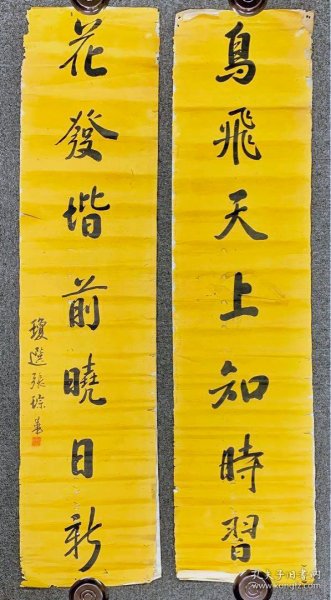 鳥飛天上知時習
花發堦前曉日新
瓊選張琮華
孔夫子旧书网